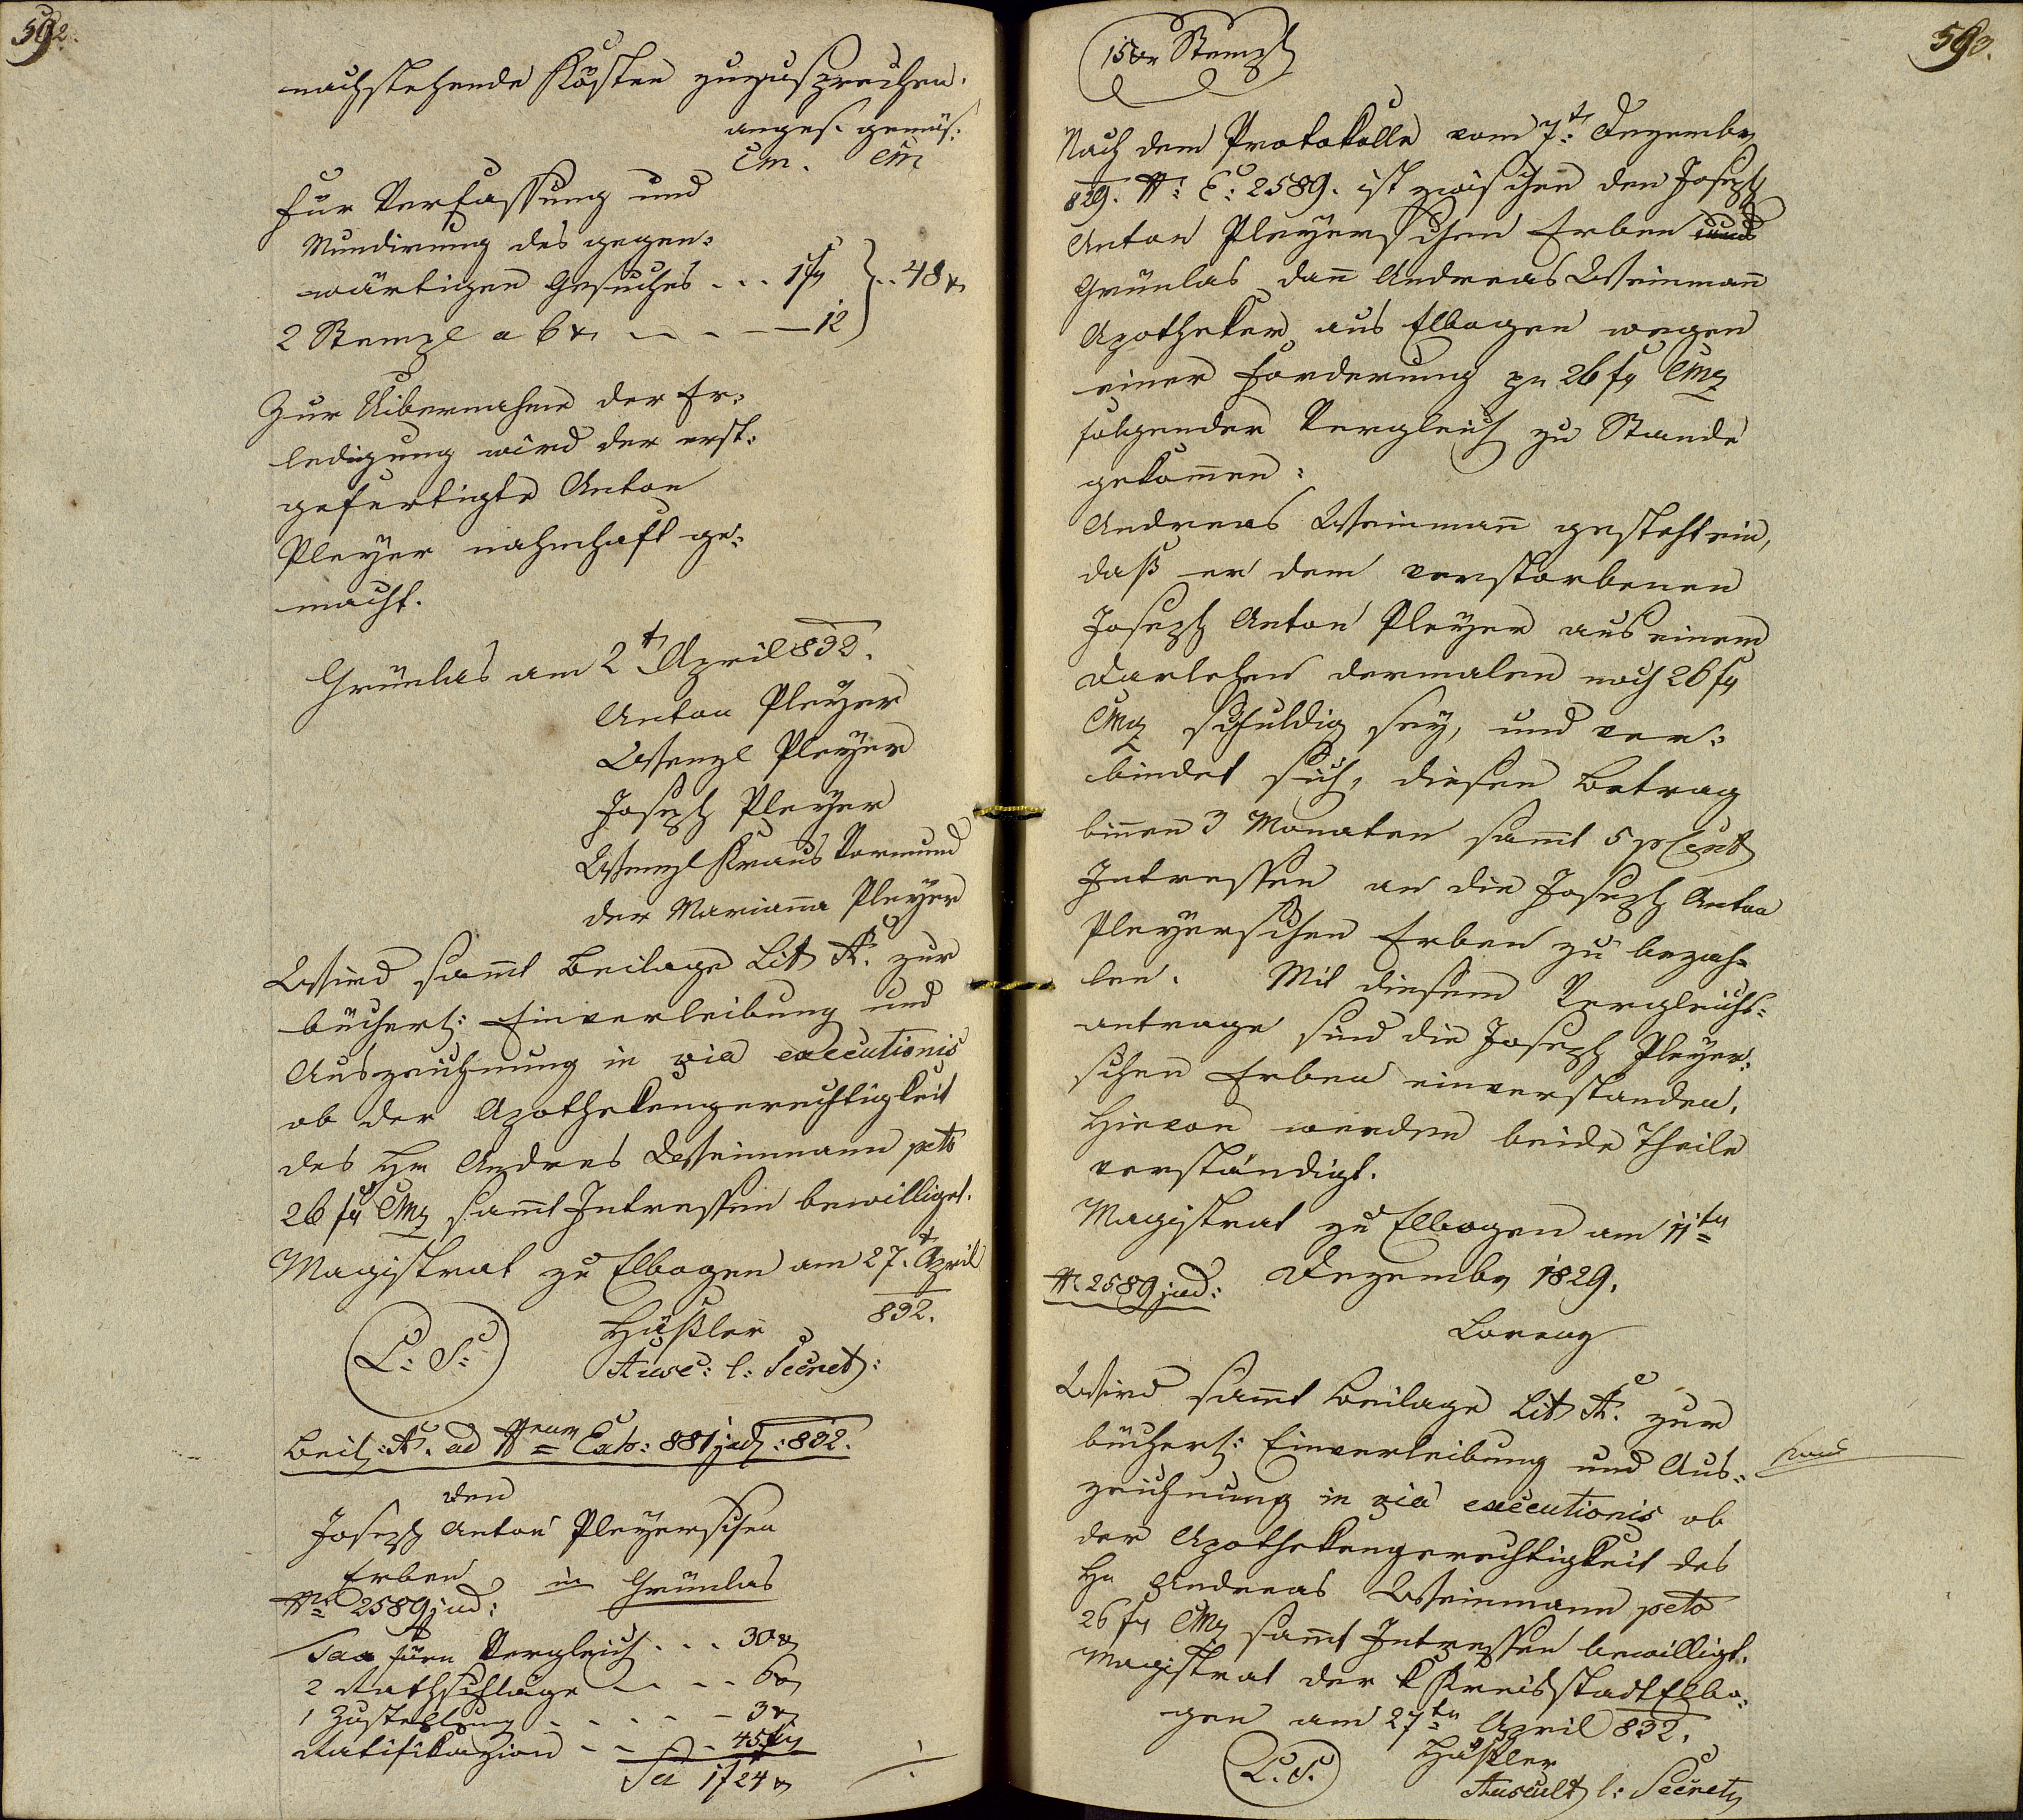 592.
nachstehende Kösten zuzusprechen.
anges. gemäs:
CM. CM
Für Verfassung und
Mundirung des gegen:
wärtigen Gesuches . . . 1 f
} . . 48 x
2 Stempl a 6 x — — — 12
Zur Uibernahme der Er:
ledigung wird der erst:
gefertigte Anton
Pleyer nahmhaft ge:
macht.
Grünlas am 2t April 832.
Anton Pleyer
Wenzl Pleyer
Joseph Pleyer
Wenzl Kraus Vormund
der Marianna Pleyer
Wird samt Beilage Lit A. zur
bücherl: Einverleibung und
Auszeichnung in via executionis
ob der Apothekengerechtigkeit
des Hr Andreas Weinmann pcto
26 f CMz samt Intressen bewilliget.
Magistrat zu Elbogen am 27t April
832.
Häßler
L: S:
Ausc: l: Secret:
Beil: A. ad Nrum Exh: 881 jud: 832.
Den
Joseph Anton Pleyerschen
Erben in Grünlas
Nr 2589 jud:
Tax fürn Vergleich . . . 30 x
2 Rathschläge — . — . 6 x
1 Zustellung . . . . — 3 x
Ratifikazion — — . . 45 x
Sa 1 f 24 x
./.
593.
15 xr Stempl
Nach dem Protokolle vom 7t: Dezember
829. N: E: 2589. ist zwischen den Joseph
Anton Pleyerschen Erben und
Grünlas dann Andreas Weinmann
Apotheker aus Elbogen wegen
einer Forderung pr 26 f CMz
folgender Vergleich zu Stande
gekommen:
Andreas Weinmann gesteht ein,
daß er dem verstorbenen
Joseph Anton Pleyer aus einem
Darlehen dermalen noch 26 f
CMz schuldig sey, und ver:
bindet sich, diesen Betrag
binnen 3 Monaten samt 5 pCent
Intressen an die Joseph Anton
Pleyerschen Erben zu bezah=
len. Mit diesem Vergleichs=
antrage sind die Joseph Pleyer:
schen Erben einverstanden.
Hievon werden beide Theile
verständigt.
Magistrat zu Elbogen am 11ten
N 2589 jud: Dezember 1829.
Lorenz
Wird samt Beilage Lit A. zur
bücherl: Einverleibung und Aus:
zeichnung in via executionis ob
der Apothekengerechtigkeit des
Hr Andreas Weinmann pcto
26 f CMz samt Intressen bewilligt.
Magistrat der k Kreisstadt Elbo:
gen am 27ten April 832.
Häßler
L. S.
Auscult l: Secret